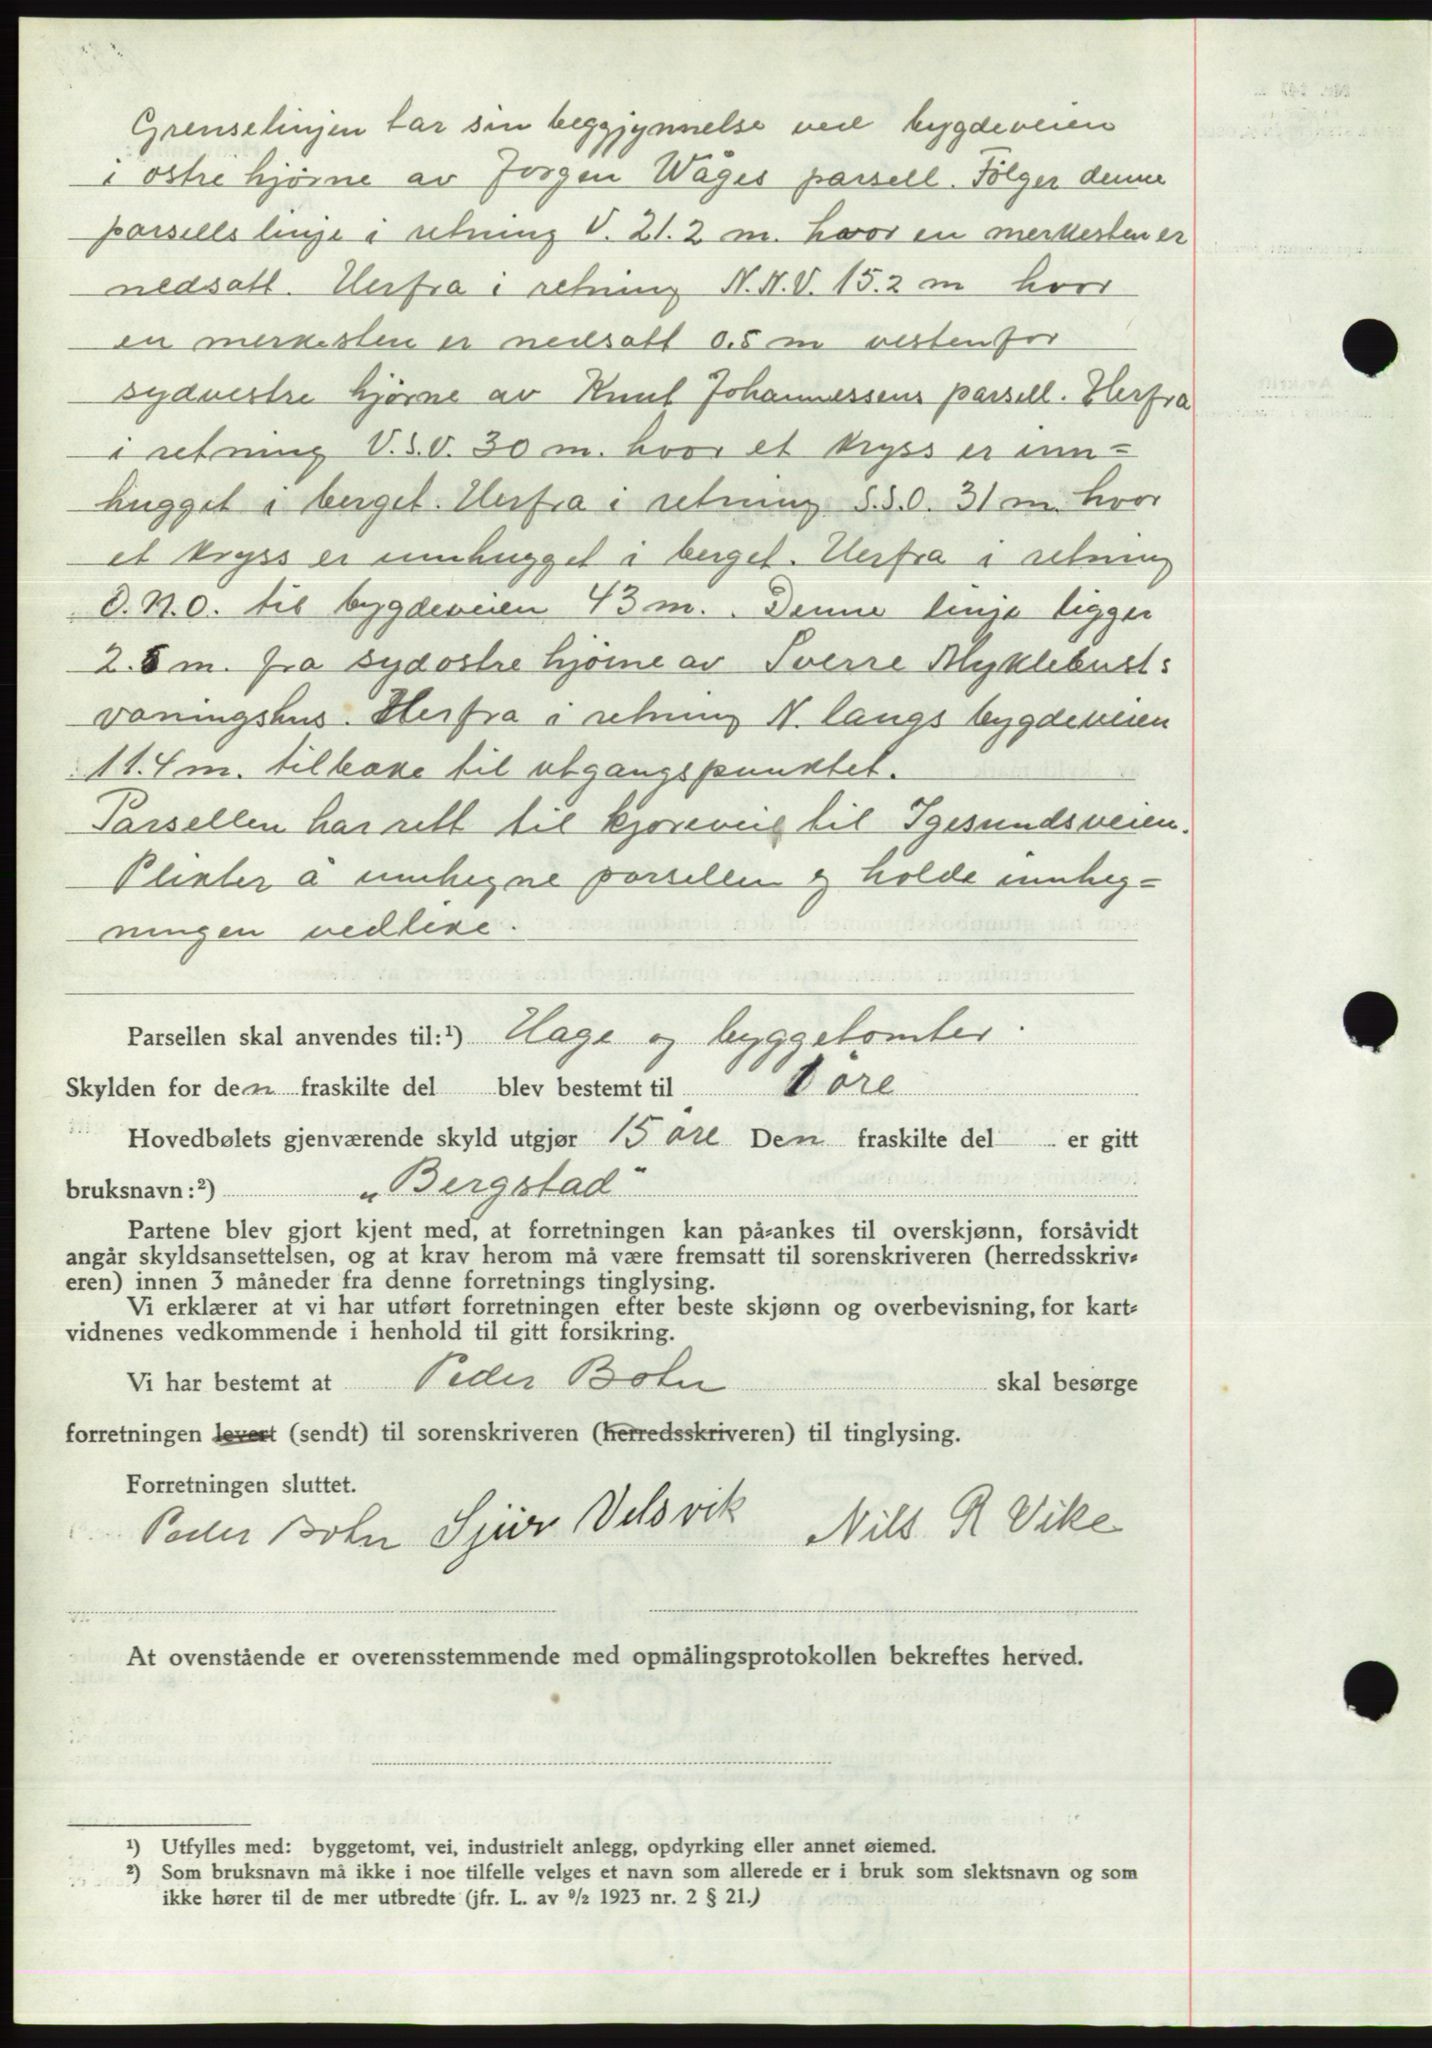 Grenselinjen tar sin beggjynnelse ved bygdeveien
i østre hjørne av Jørgen Wåges parsell. Følger denne
parsells linje i retning V. 21.2 m. hvor en merkesten er
nedsatt. Herfra i retning N.N.V. 15.2 m hvor
en merkesten er nedsatt 0.5 m vestenfor
sydvestre hjørne av Knut Johannessens parsell. Herfra
i retning V.S.V. 30 m. hvor et kryss er inn=
hugget i berget. Herfra i retning S.S.O. 31 m. hvor
et kryss er innhugget i berget. Herfra i retning
O.N.O. til bygdeveien 43 m. . Denne linje ligger
2.5 m. fra sydøstre hjørne av Sverre Myklebusts
våningshus. Herfra i retning N. langs bygdeveien
11.4 m. tilbake til utgangspunktet.
Parsellen har rett til kjørevei til Igesundsveien.
Plikter å innhegne parsellen og holde innheg=
ningen vedlike.
Parsellen skal anvendes til:¹) Hage og byggetomter.
Skylden for den fraskilte del blev bestemt til 1 øre
Hovedbølets gjenværende skyld utgjør 15 øre Den fraskilte del er gitt
bruksnavn:²) „Bergstad"
Partene blev gjort kjent med, at forretningen kan på=ankes til overskjønn, forsåvidt
angår skyldsansettelsen, og at krav herom må være fremsatt til sorenskriveren (herredsskriv=
eren) innen 3 måneder fra denne forretnings tinglysing.
Vi erklærer at vi har utført forretningen efter beste skjønn og overbevisning, for kart=
vidnenes vedkommende i henhold til gitt forsikring.
Vi har bestemt at Peder Bohn skal besørge
forretningen levert (sendt) til sorenskriveren (herredsskriveren) til tinglysing.
Forretningen sluttet.
Peder Bohn Sjur Velsvik Nils R Vike
At ovenstående er overensstemmende med opmålingsprotokollen bekreftes herved.
¹) Utfylles med: byggetomt, vei, industrielt anlegg, opdyrking eller annet øiemed.
²) Som bruksnavn må ikke i noe tilfelle velges et navn som allerede er i bruk som slektsnavn og som
ikke hører til de mer utbredte (jfr. L. av 9/2 1923 nr. 2 § 21.)